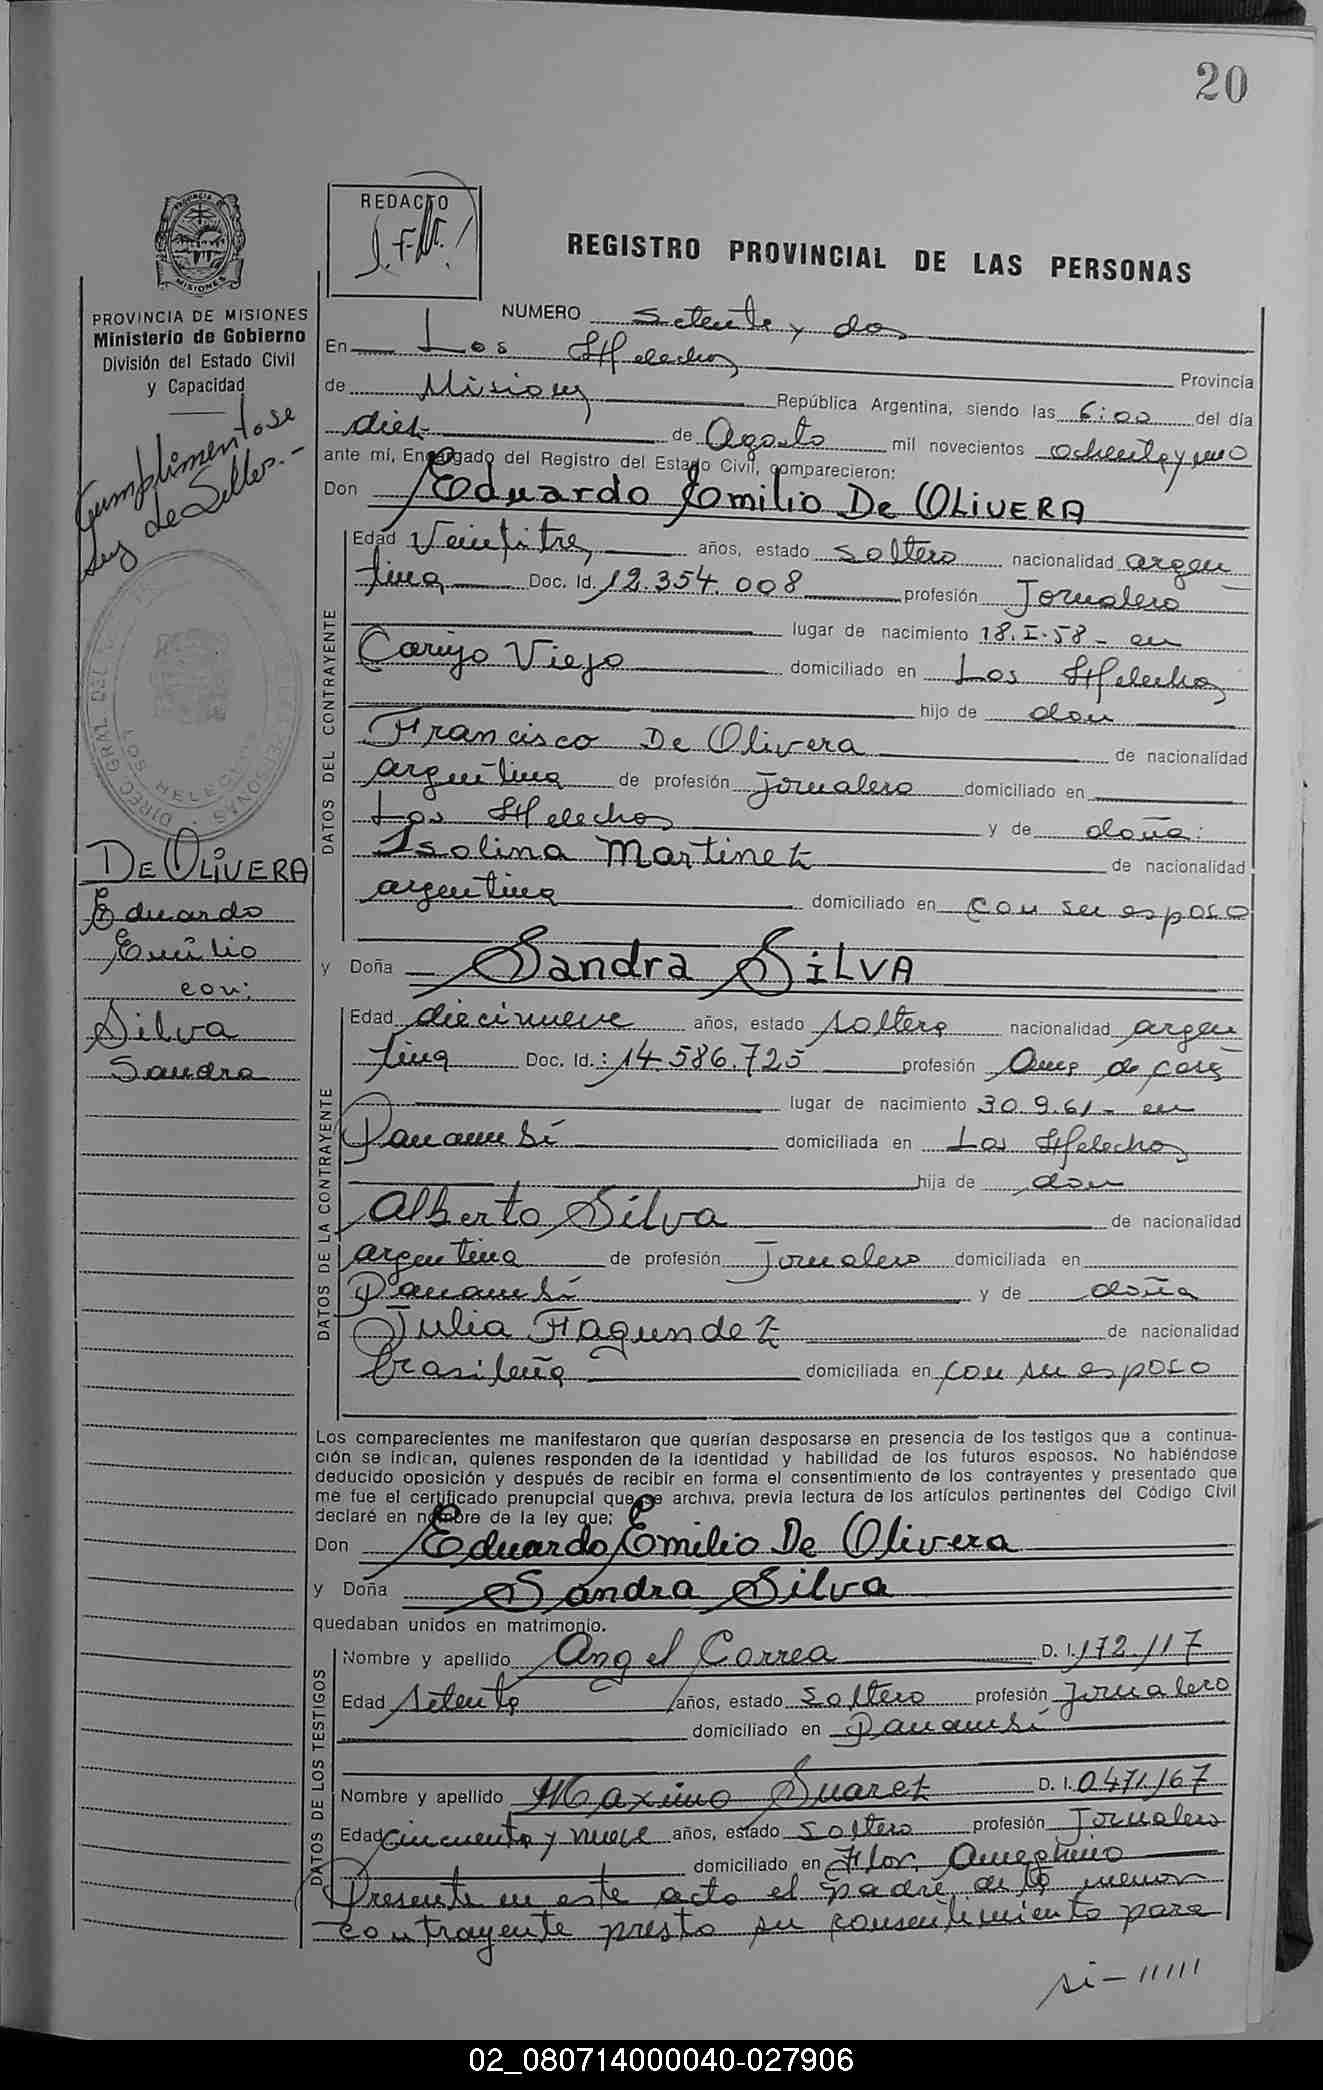 20
REDACTO
REGISTRO PROVINCIAL DE LAS PERSONAS
PROVINCIA DE MISIONES
Ministerio de Gobierno
División del Estado Civil
y Capacidad
Cumplimentose
Ley de Sellos.-
LOS HELECHOS
DE OLIVERA
Eduardo
Emilio
con:
Silva
Sandra
NUMERO Setenta y dos
En Los Helechos Provincia
de Misiones República Argentina, siendo las 6:00 del día
diez de Agosto mil novecientos ochenta y uno
ante mí, Encargado del Registro del Estado Civil, comparecieron:
Don Eduardo Emilio De OLIVERA
DATOS DEL CONTRAYENTE
Edad Veintitres años, estado soltero nacionalidad argen
tina Doc. Id. 12.354.008 profesión Jornalero
lugar de nacimiento 18.I.58- en
Cariyo Viejo domiciliado en Los Helechos
hijo de don
Francisco De Olivera de nacionalidad
argentina de profesión jornalero domiciliado en
Los Helechos y de doña:
Isolina Martinez de nacionalidad
argentina domiciliado en con su esposo
y Doña Sandra SILVA
DATOS DE LA CONTRAYENTE
Edad diecinueve años, estado soltera nacionalidad argen
tina Doc. Id.: 14.586.725 profesión Ama de casa
lugar de nacimiento 30.9.61- en
Panambí domiciliada en Los Helechos
hija de don
Alberto Silva de nacionalidad
argentina de profesión Jornalero domiciliada en
Panambí y de doña
Julia Fagundez de nacionalidad
brasileña domiciliada en con su esposo
Los comparecientes me manifestaron que querían desposarse en presencia de los testigos que a continua-
ción se indican, quienes responden de la identidad y habilidad de los futuros esposos. No habiéndose
deducido oposición y después de recibir en forma el consentimiento de los contrayentes y presentado que
me fue el certificado prenupcial que se archiva, previa lectura de los artículos pertinentes del Código Civil
declaré en nombre de la ley que:
Don Eduardo Emilio De Olivera
y Doña Sandra Silva
quedaban unidos en matrimonio.
DATOS DE LOS TESTIGOS
Nombre y apellido Angel Correa D. I. 172.117
Edad setenta años, estado soltero profesión Jornalero
domiciliado en Panambí
Nombre y apellido Maximo Suarez D. I. 0471167
Edad cincuenta y nueve años, estado soltero profesión Jornalero
domiciliado en Flor. Ameghino
Presente en este acto el padre de la menor
contrayente presto su consentimiento para
si-//////
02_080714000040-027906